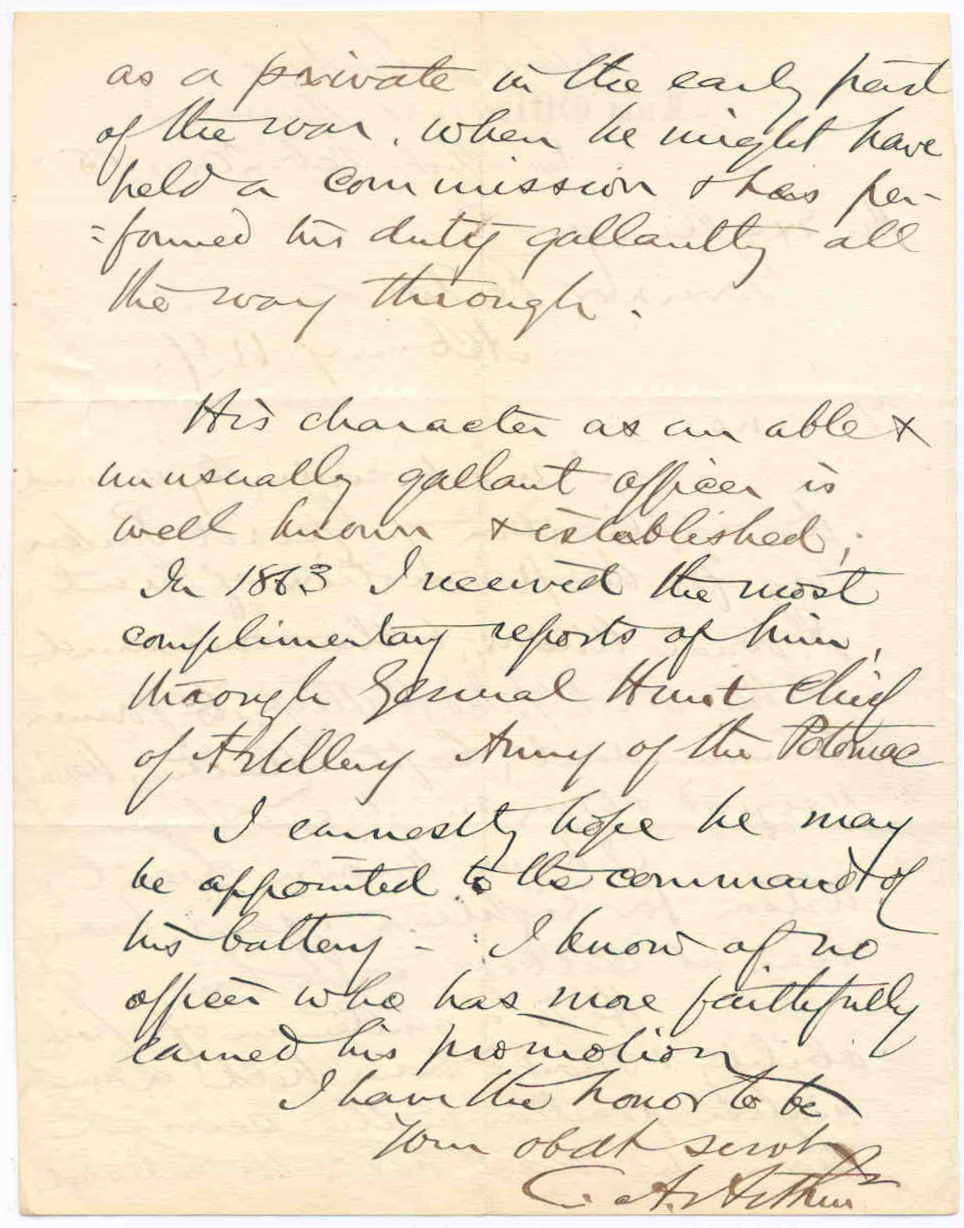 as a private in the early part
of the war, when he might have
held a commission & has per-
=formed his duty gallantly all
the way through.
His character as an able &
unusually gallant officer is
well known & established;
In 1863 I received the most
complimentary reports of him,
through General Hunt Chief
of Artillery Army of the Potomac
I earnestly hope he may
be appointed to the command of
his battery - I know of no
officer who has more faithfully
earned his promotion
I have the honor to be
Your obdt servt
C. A. Arthur